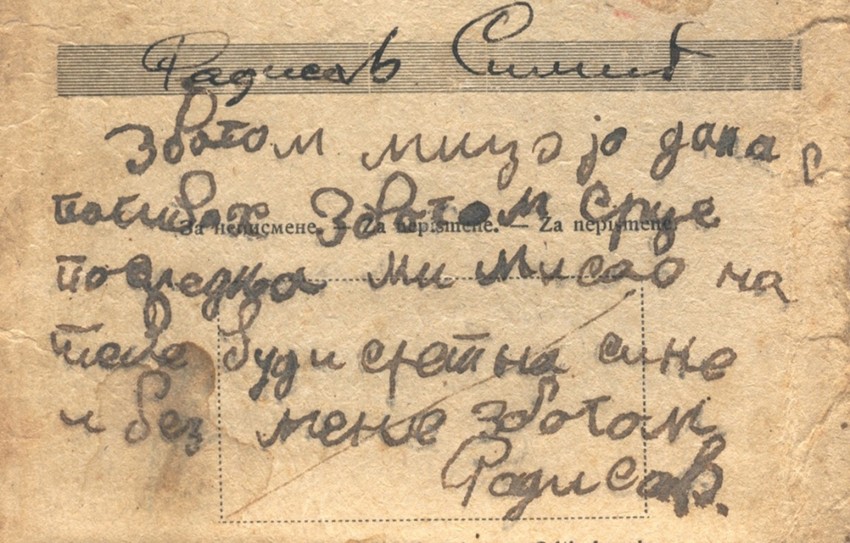 Радисав Симић
Збогом мицо јо дана с
погивах Збогом Срце
За неписмене. — Za nepismene. — Za nepismene.
последња ми мисао на
тебе буди сретна сине
и без мене збогом
Радисав.